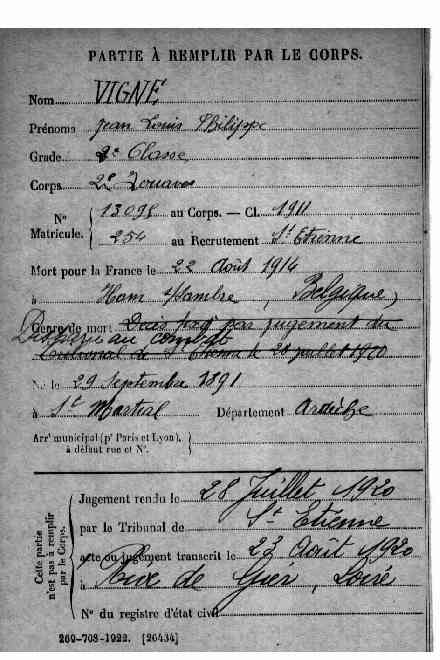 PARTIE À REMPLIR PAR LE CORPS.
Nom VIGNE
Prénoms Jean Louis Philippe
Grade 2e Classe
Corps 2e Zouaves
N° Matricule. { 13098 au Corps. — Cl. 1911
254 au Recrutement St Etienne
Mort pour la France le 22 Août 1914
à Ham s/Sambre, Belgique)
Genre de mort par jugement du
Disparu au combat
Tribunal de St Etienne le 28 juillet 1920
Né le 29 Septembre 1891
à St Martial Département Ardèche
Arrt municipal (pr Paris et Lyon),
à défaut rue et N°.
Cette partie
n'est pas à remplir
par le Corps.
Jugement rendu le 28 Juillet 1920
par le Tribunal de St Etienne
acte ou jugement transcrit le 23 Août 1920
à Rive de Gier, Loire
N° du registre d'état civil
269-708-1922. [26434]